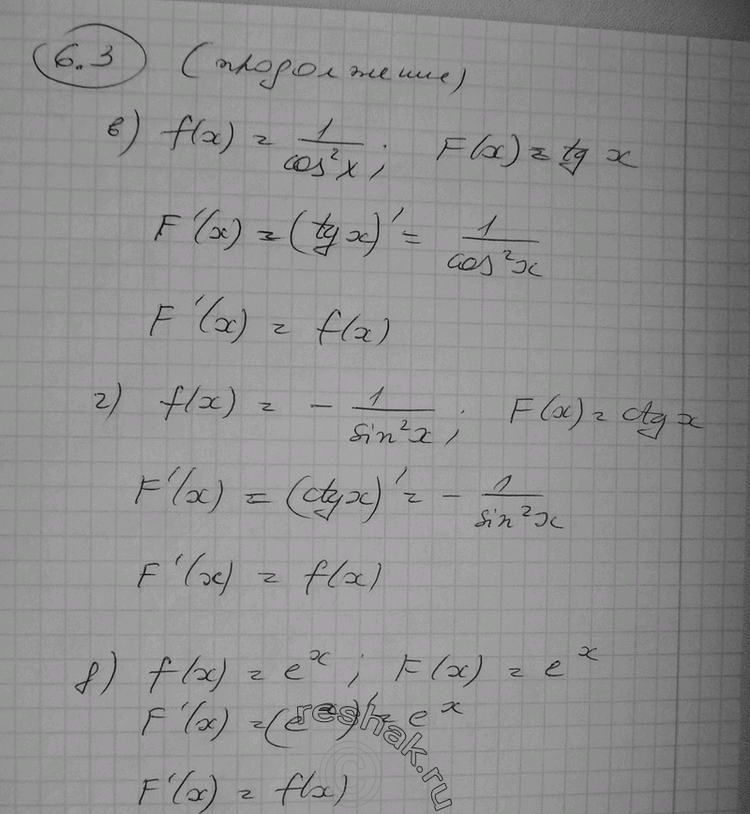 6.3 (продолжение)
в) f(x) = 1/cos²x; F(x) = tg x
F'(x) = (tg x)' = 1/cos²x
F'(x) = f(x)
г) f(x) = - 1/sin²x; F(x) = ctg x
F'(x) = (ctg x)' = - 1/sin²x
F'(x) = f(x)
д) f(x) = eˣ; F(x) = eˣ
F'(x) = (eˣ)' = eˣ
F'(x) = f(x)
reshak.ru